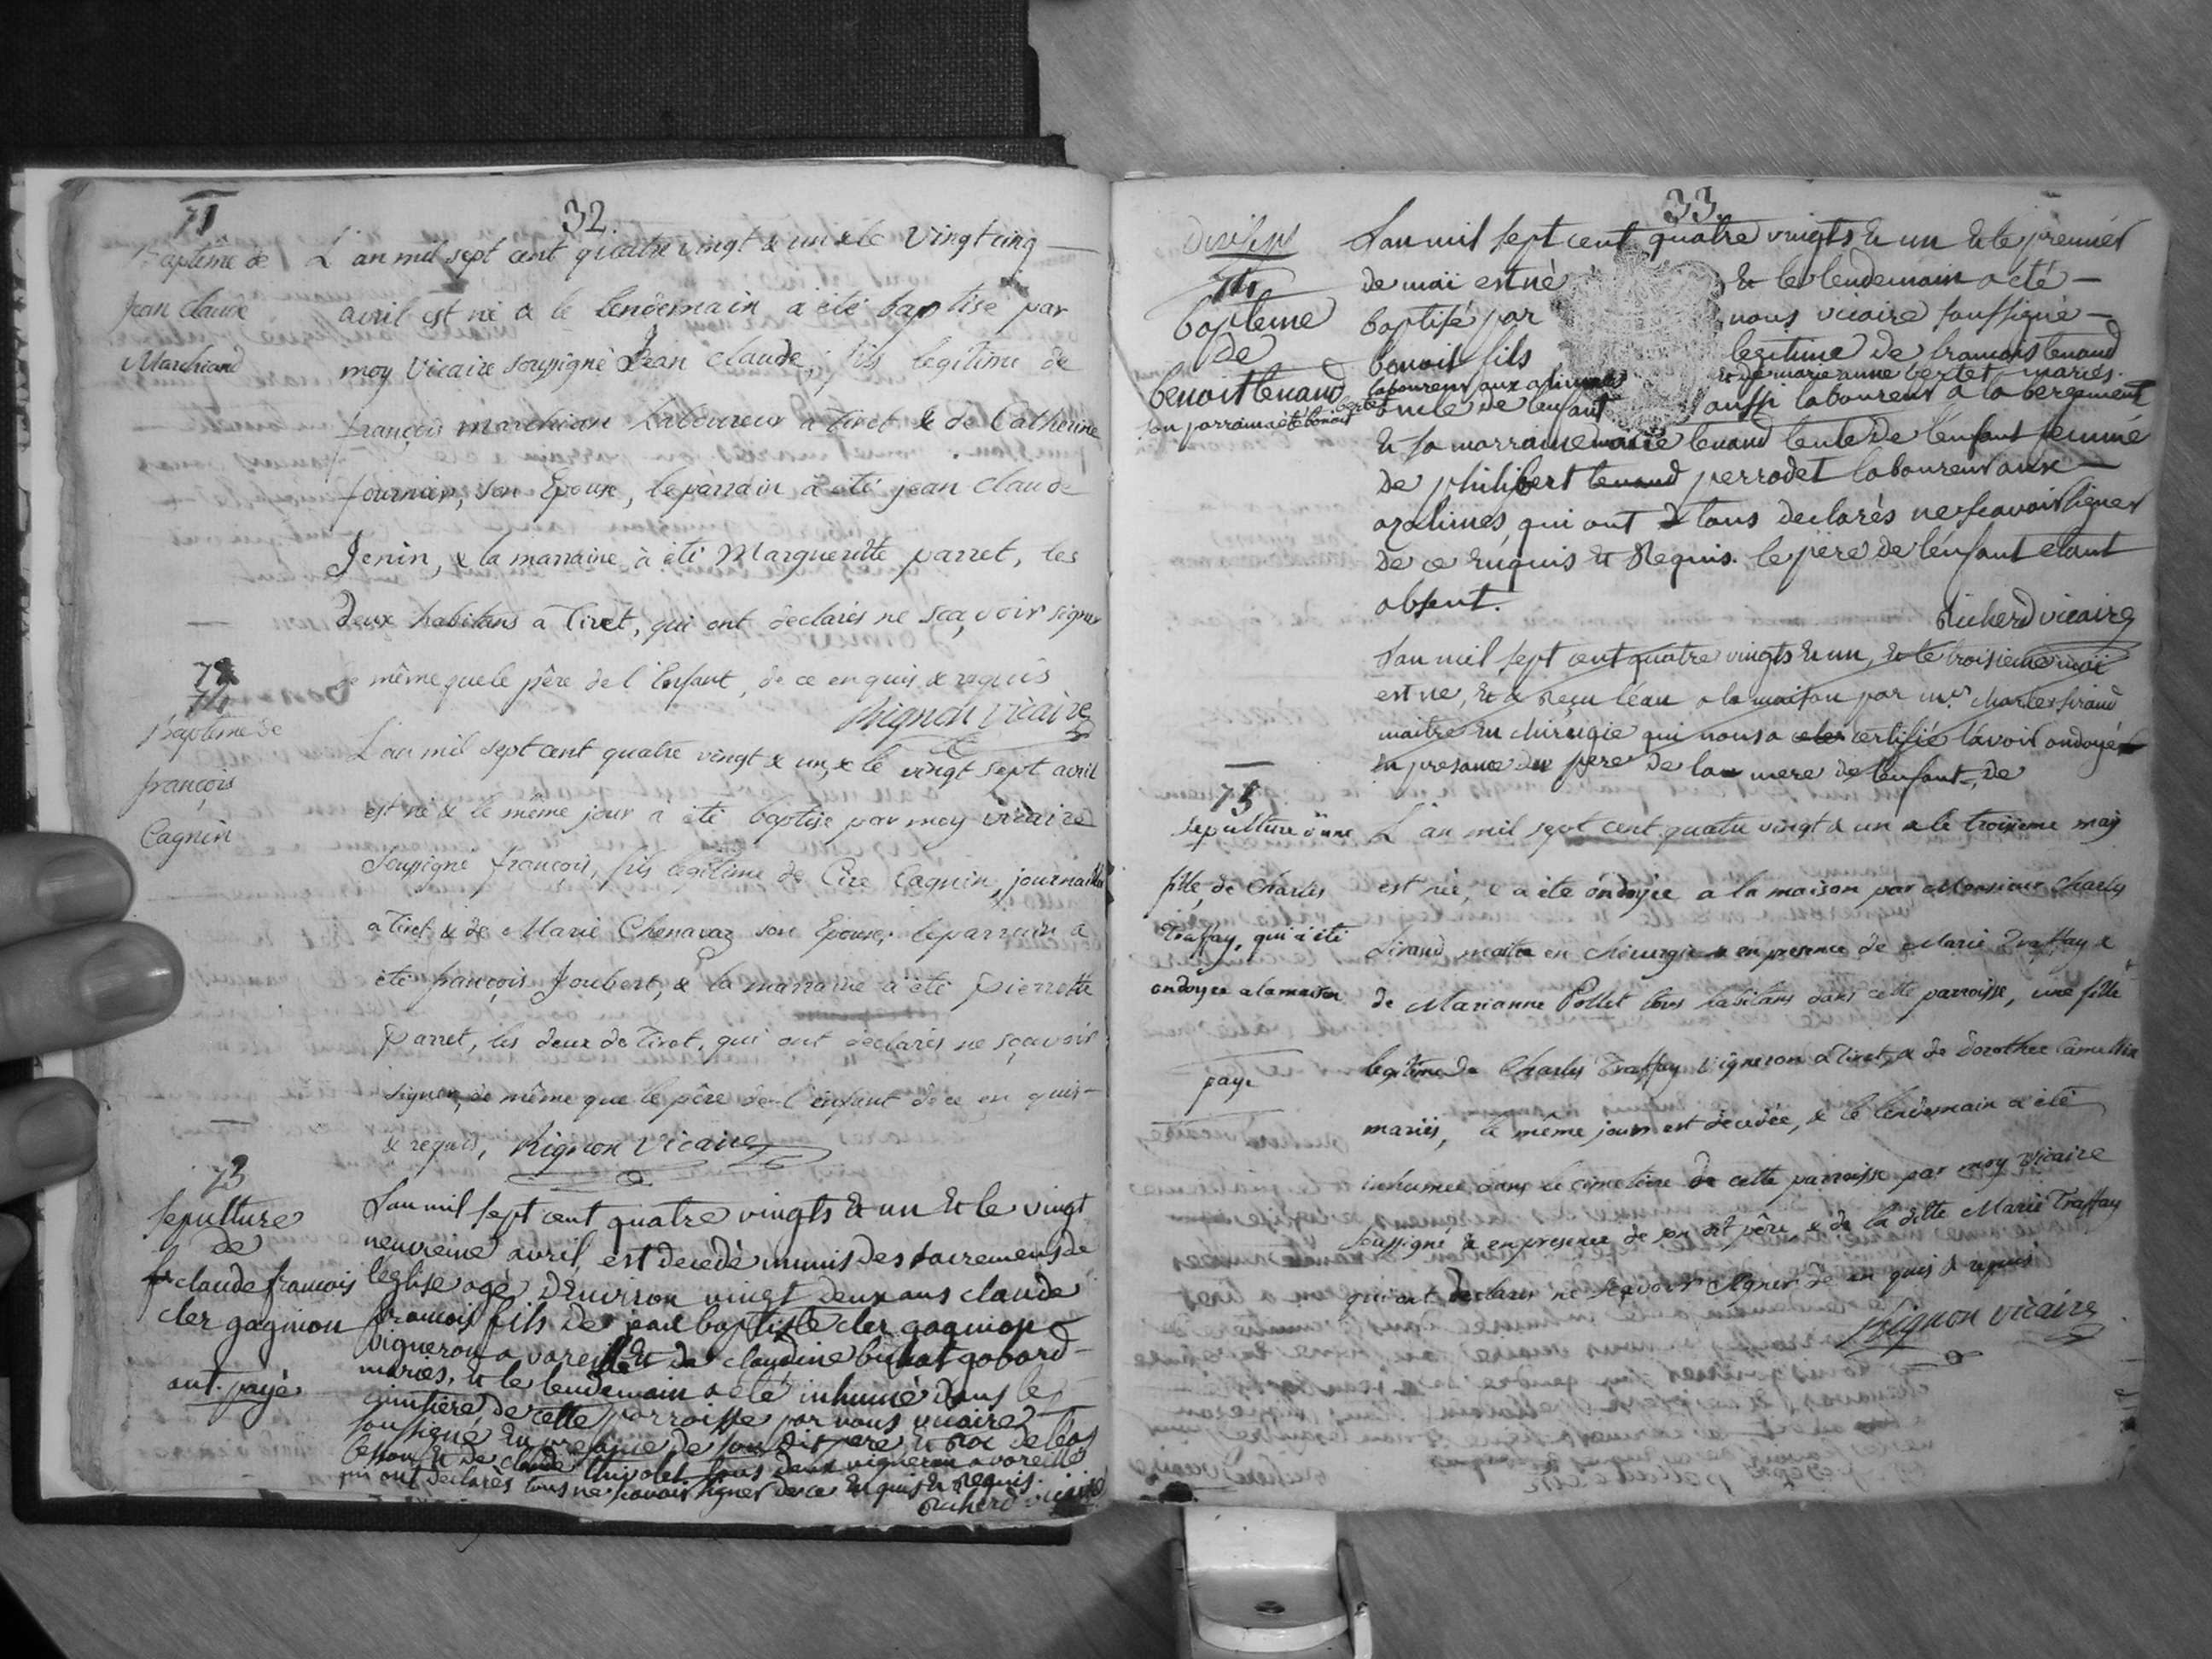 32.
71
Baptême de
Jean claude
Marchand
L'an mil sept cent quatre vingt & un & le vingt cinq
avril est né & le lendemain a été baptisé par
moy vicaire soussigné Jean claude, fils legitime de
françois marchian Laboureur a Tiret & de Catherine
fournier, son Epouse, le parrain à été jean claude
Jenin, & la marraine à été Marguerite parret, les
deux habitans a Tiret, qui ont declarés ne sçavoir signer
de même que le père de l'Enfant, de ce enquis & requis
Rignon vicaire
72
Baptême de
françois
Cagnin
L'an mil sept cent quatre vingt & un, & le vingt sept avril
est né & le même jour à été baptisé par moy vicaire
soussigné françois, fils legitime de Cire Cagnin, journallier
a Tiret & de Marie Chenavaz son Epouse, le parrain à
été françois Joubert, & la marraine a été Pierrette
Parret, les deux de Tiret, qui ont declarés ne sçavoir
signer, de même que le père de l'enfant de ce en quis
& requis, Rignon Vicaire
73
Sepulture
de
claude francois
cler gagnion
ont payé
Lan mil sept cent quatre vingts & un & le vingt
neuvieme avril, est decedé munis des sacremens de
leglise agé denviron vingt deux ans claude
francois fils de jean baptiste cler gagnion
vigneron a vareille & de claudine gobard
mariés, & le lendemain a été inhumé dans le
cimetiere de cette parroisse par nous vicaire
soussigné en presance de son dit pere &
& de claude thivolet tous deux vigneron a vareille
qui ont declarés tous ne scavoir signer de ce enquis & requis.
Richerd vicaire
33.
74
bapteme
de
benoit tenand
son parrain a été benoit
bertet
Lan mil sept cent quatre vingts & un & le premier
de mai est né & le lendemain a été
baptisé par nous vicaire soussigné
benoit fils legitime de francois tenand
laboureur aux & de marie anne bertet mariés.
oncle de lenfant aussi laboureur a la bergement
& sa marraine marie tenand tente de lenfant femme
de philibert tenand perrodet laboureur aux
qui ont tous declarés ne scavoir signer
de ce enquis & Requis. le père de lenfant etant
absent.
Richerd vicaire
Lan mil sept cent quatre vingts & un, & le troisieme mai
est né, & a reçu l'eau a la maison par mr charles sirand
maitre en chirurgie qui nous a certifié lavoir ondoyé
en presance du pere de la mere de lenfant, de
75
Sepulture d'une
fille, de Charles
Traffay, qui a été
ondoyée a la maison
payé
L'an mil sept cent quatre vingt & un & le troisieme may
est née, & a été ondoyée a la maison par Monsieur Charles
Sirand maitre en chirurgie en presence de Marie Traffay &
de Marianne Pollet tous habitans dans cette parroisse, une fille
legitime de Charles Traffay Vigneron a Tiret, & de dorothée
mariés, le même jour est décedée, & le lendemain a été
inhumée dans le cimetiere de cette parroisse par moy vicaire
soussigné & en presence de son dit père & de la ditte Marie Traffay
qui ont declarés ne sçavoir signer de ce en quis & requis
Rignon vicaire